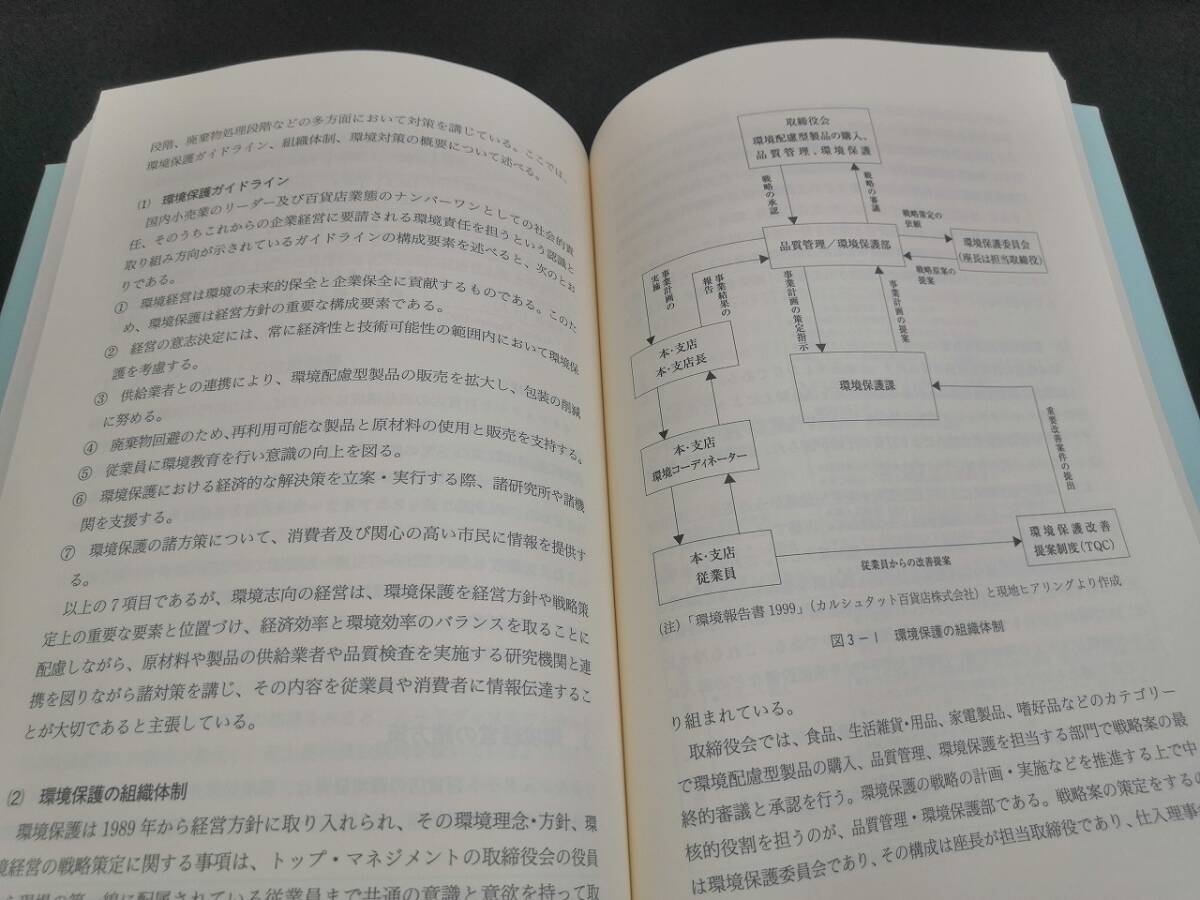 段階、廃棄物処理段階などの多方面において対策を講じている。ここでは、
環境保護ガイドライン、組織体制、環境対策の概要について述べる。
(1) 環境保護ガイドライン
国内小売業のリーダー及び百貨店業態のナンバーワンとしての社会的責
任、そのうちこれからの企業経営に要請される環境責任を担うという認識と
取り組み方向が示されているガイドラインの構成要素を述べると、次のとお
りである。
① 環境経営は環境の未来的保全と企業保全に貢献するものである。このた
め、環境保護は経営方針の重要な構成要素である。
② 経営の意志決定には、常に経済性と技術可能性の範囲内において環境保
護を考慮する。
③ 供給業者との連携により、環境配慮型製品の販売を拡大し、包装の削減
に努める。
④ 廃棄物回避のため、再利用可能な製品と原材料の使用と販売を支持する。
⑤ 従業員に環境教育を行い意識の向上を図る。
⑥ 環境保護における経済的な解決策を立案・実行する際、諸研究所や諸機
関を支援する。
⑦ 環境保護の諸方策について、消費者及び関心の高い市民に情報を提供す
る。
以上の7項目であるが、環境志向の経営は、環境保護を経営方針や戦略策
定上の重要な要素と位置づけ、経済効率と環境効率のバランスを取ることに
配慮しながら、原材料や製品の供給業者や品質検査を実施する研究機関と連
携を図りながら諸対策を講じ、その内容を従業員や消費者に情報伝達するこ
とが大切であると主張している。
(2) 環境保護の組織体制
環境保護は1989年から経営方針に取り入れられ、その環境理念・方針、環
境経営の戦略策定に関する事項は、トップ・マネジメントの取締役会の役員
から現場の第一線に配属されている従業員まで共通の意識と意欲を持って取
取締役会
環境配慮型製品の購入、
品質管理、環境保護
戦略の承認
戦略の審議
品質管理/環境保護部
戦略策定の
依頼
戦略原案の
提案
環境保護委員会
(座長は担当取締役)
事業計画の
実施
事業結果の
報告
事業計画の策定指示
事業計画の提案
本・支店
本・支店長
環境保護課
本・支店
環境コーディネーター
重要改善案件の提出
本・支店
従業員
従業員からの改善提案
環境保護改善
提案制度(TQC)
(注)「環境報告書1999」(カルシュタット百貨店株式会社)と現地ヒアリングより作成
図3-1 環境保護の組織体制
り組まれている。
取締役会では、食品、生活雑貨・用品、家電製品、嗜好品などのカテゴリー
で環境配慮型製品の購入、品質管理、環境保護を担当する部門で戦略案の最
終的審議と承認を行う。環境保護の戦略の計画・実施などを推進する上で中
核的役割を担うのが、品質管理・環境保護部である。戦略案の策定をするの
は環境保護委員会であり、その構成は座長が担当取締役であり、仕入理事